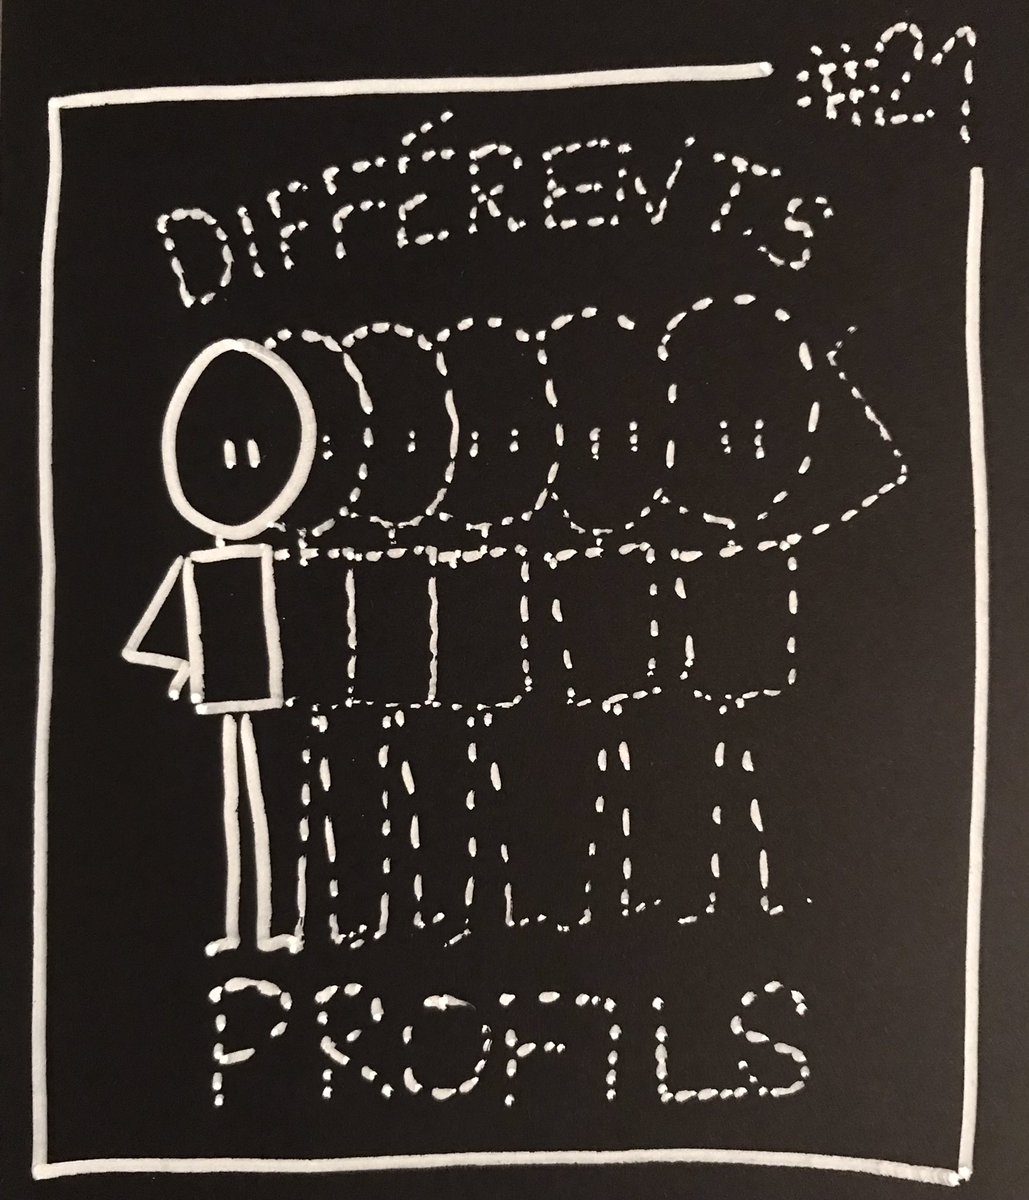 #21
DIFFÉRENTS
PROFILS